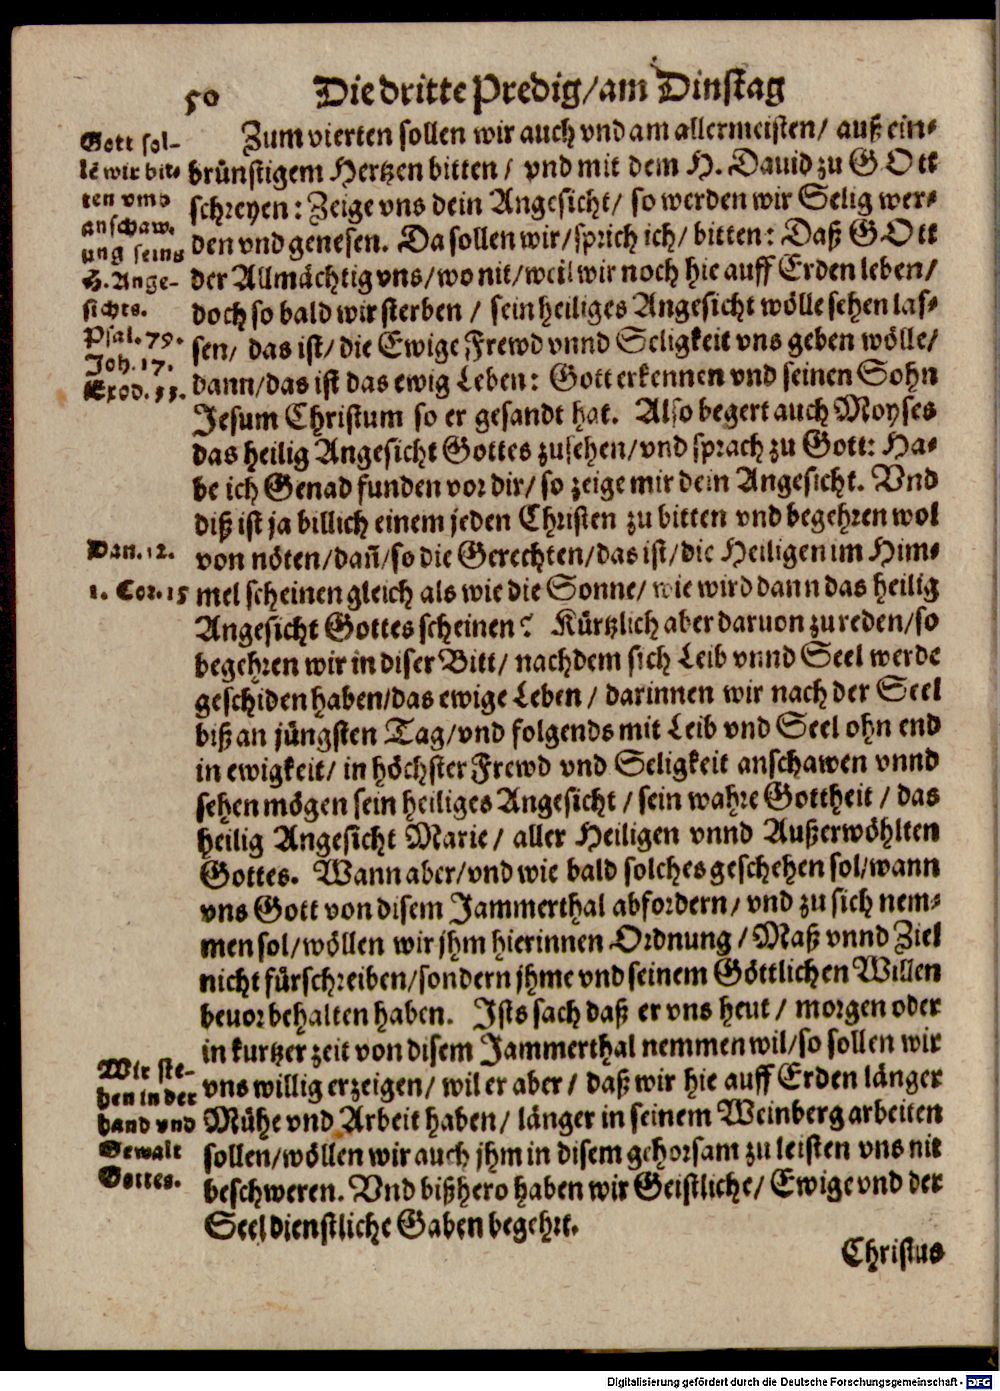 50 Die dritte Predig/am Dinstag
Gott sol-
lē wir bit-
ten vmb
anschaw-
ung seins
H. Ange-
sichts.
Psal. 79.
Joh. 17.
Exod. 33.
Zum vierten sollen wir auch vnd am allermeisten/ auß ein-
brünstigem Hertzen bitten / vnd mit dem H. Dauid zu GOtt
schreyen: Zeige vns dein Angesicht/ so werden wir Selig wer-
den vnd genesen. Da sollen wir/sprich ich/ bitten: Daß GOtt
der Allmächtig vns/wo nit/weil wir noch hie auff Erden leben/
doch so bald wir sterben / sein heiliges Angesicht wölle sehen las-
sen/ das ist/ die Ewige Frewd vnnd Seligkeit vns geben wölle/
dann/das ist das ewig Leben: Gott erkennen vnd seinen Sohn
Jesum Christum so er gesandt hat. Also begert auch Moyses
das heilig Angesicht Gottes zusehen/vnd sprach zu Gott: Ha-
be ich Genad funden vor dir/ so zeige mir dein Angesicht. Vnd
diß ist ja billich einem jeden Christen zu bitten vnd begehren wol
Dan. 12.
von nöten/dañ/so die Gerechten/das ist/die Heiligen im Him-
1. Cor. 15
mel scheinen gleich als wie die Sonne/ wie wird dann das heilig
Angesicht Gottes scheinen? Kürtzlich aber daruon zu reden/so
begehren wir in diser Bitt/ nachdem sich Leib vnnd Seel werde
geschiden haben/das ewige Leben / darinnen wir nach der Seel
biß an jüngsten Tag/vnd folgends mit Leib vnd Seel ohn end
in ewigkeit/ in höchster Frewd vnd Seligkeit anschawen vnnd
sehen mögen sein heiliges Angesicht / sein wahre Gottheit / das
heilig Angesicht Marie/ aller Heiligen vnnd Außerwöhlten
Gottes. Wann aber/vnd wie bald solches geschehen sol/wann
vns Gott von disem Jammerthal abfordern/ vnd zu sich nem-
men sol/wöllen wir jhm hierinnen Ordnung / Maß vnnd Ziel
nicht fürschreiben/sondern jhme vnd seinem Göttlichen Willen
beuor behalten haben. Ists sach daß er vns heut / morgen oder
in kurtzer zeit von disem Jammerthal nemmen wil/so sollen wir
Wir ste-
hen in der
hand vnd
Gewalt
Gottes.
vns willig erzeigen/ wil er aber / daß wir hie auff Erden länger
Mühe vnd Arbeit haben/ länger in seinem Weinberg arbeiten
sollen/wöllen wir auch jhm in disem gehorsam zu leisten vns nit
beschweren. Vnd bißhero haben wir Geistliche/ Ewige vnd der
Seel dienstliche Gaben begehrt.
Christus
Digitalisierung gefördert durch die Deutsche Forschungsgemeinschaft - DFG